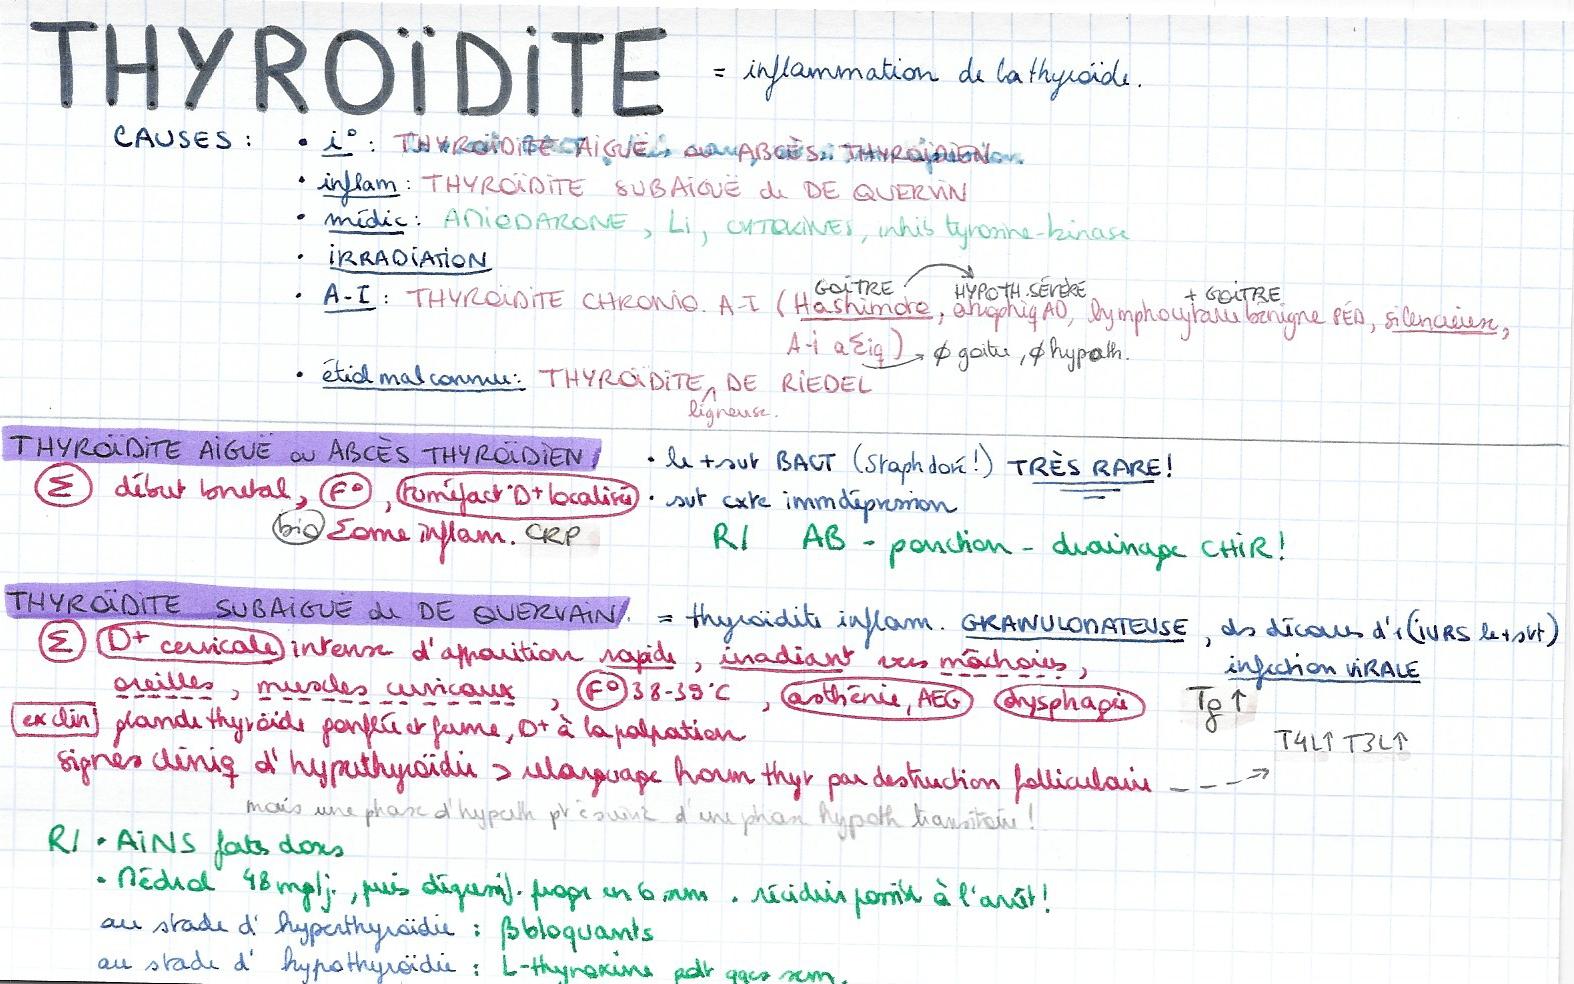 THYROÏDITE = inflammation de la thyroïde.
CAUSES : • i° : THYROÏDITE AIGUË ou ABCÈS THYROÏDIEN
• inflam : THYROÏDITE SUBAIGUË de DE QUERVIN
• médic : AMIODARONE, Li, CYTOKINES, inhib tyrosine-kinase
• IRRADIATION
GOÎTRE HYPOTH. SÉVÈRE + GOÎTRE
• A-I : THYROÏDITE CHRONIQ. A-I (Hashimoto, atrophiq AD, lymphocytaire bénigne PÉD, silencieuse,
A-i aΣiq) → ∅ goitre, ∅ hypoth.
• étiol mal connue : THYROÏDITE DE RIEDEL
ligneuse.
THYROÏDITE AIGUË ou ABCÈS THYROÏDIEN • le + svt BACT (Staph doré !) TRÈS RARE !
Σ début brutal, F°, tuméfact° D+ localisée • svt cxte immdépression
bio Σome inflam. CRP R/ AB - ponction - drainage CHIR !
THYROÏDITE SUBAIGUË de DE QUERVAIN = thyroïdite inflam. GRANULOMATEUSE, ds décours d'1 (iVRS le + svt)
infection VIRALE
Σ D+ cervicale intense d'apparition rapide, irradiant vers mâchoires,
oreilles, muscles cervicaux, F° 38-39°C, asthénie, AEG dysphagie Tg ↑
ex clin glande thyroïde gonflée et ferme, D+ à la palpation
T4L↑ T3L↑
signes cliniq d'hyperthyroïdie > relarguage horm thyr par destruction folliculaire --->
mais une phase d'hyperth pt ê suivie d'une phase hypoth transitoire !
R/ • AINS fortes doses
• Médrol 48 mg/j, puis dégressif. progr en 6 sem. récidives possib à l'arrêt !
au stade d'hyperthyroïdie : βbloquants
au stade d'hypothyroïdie : L-thyroxine pdt qqes sem.